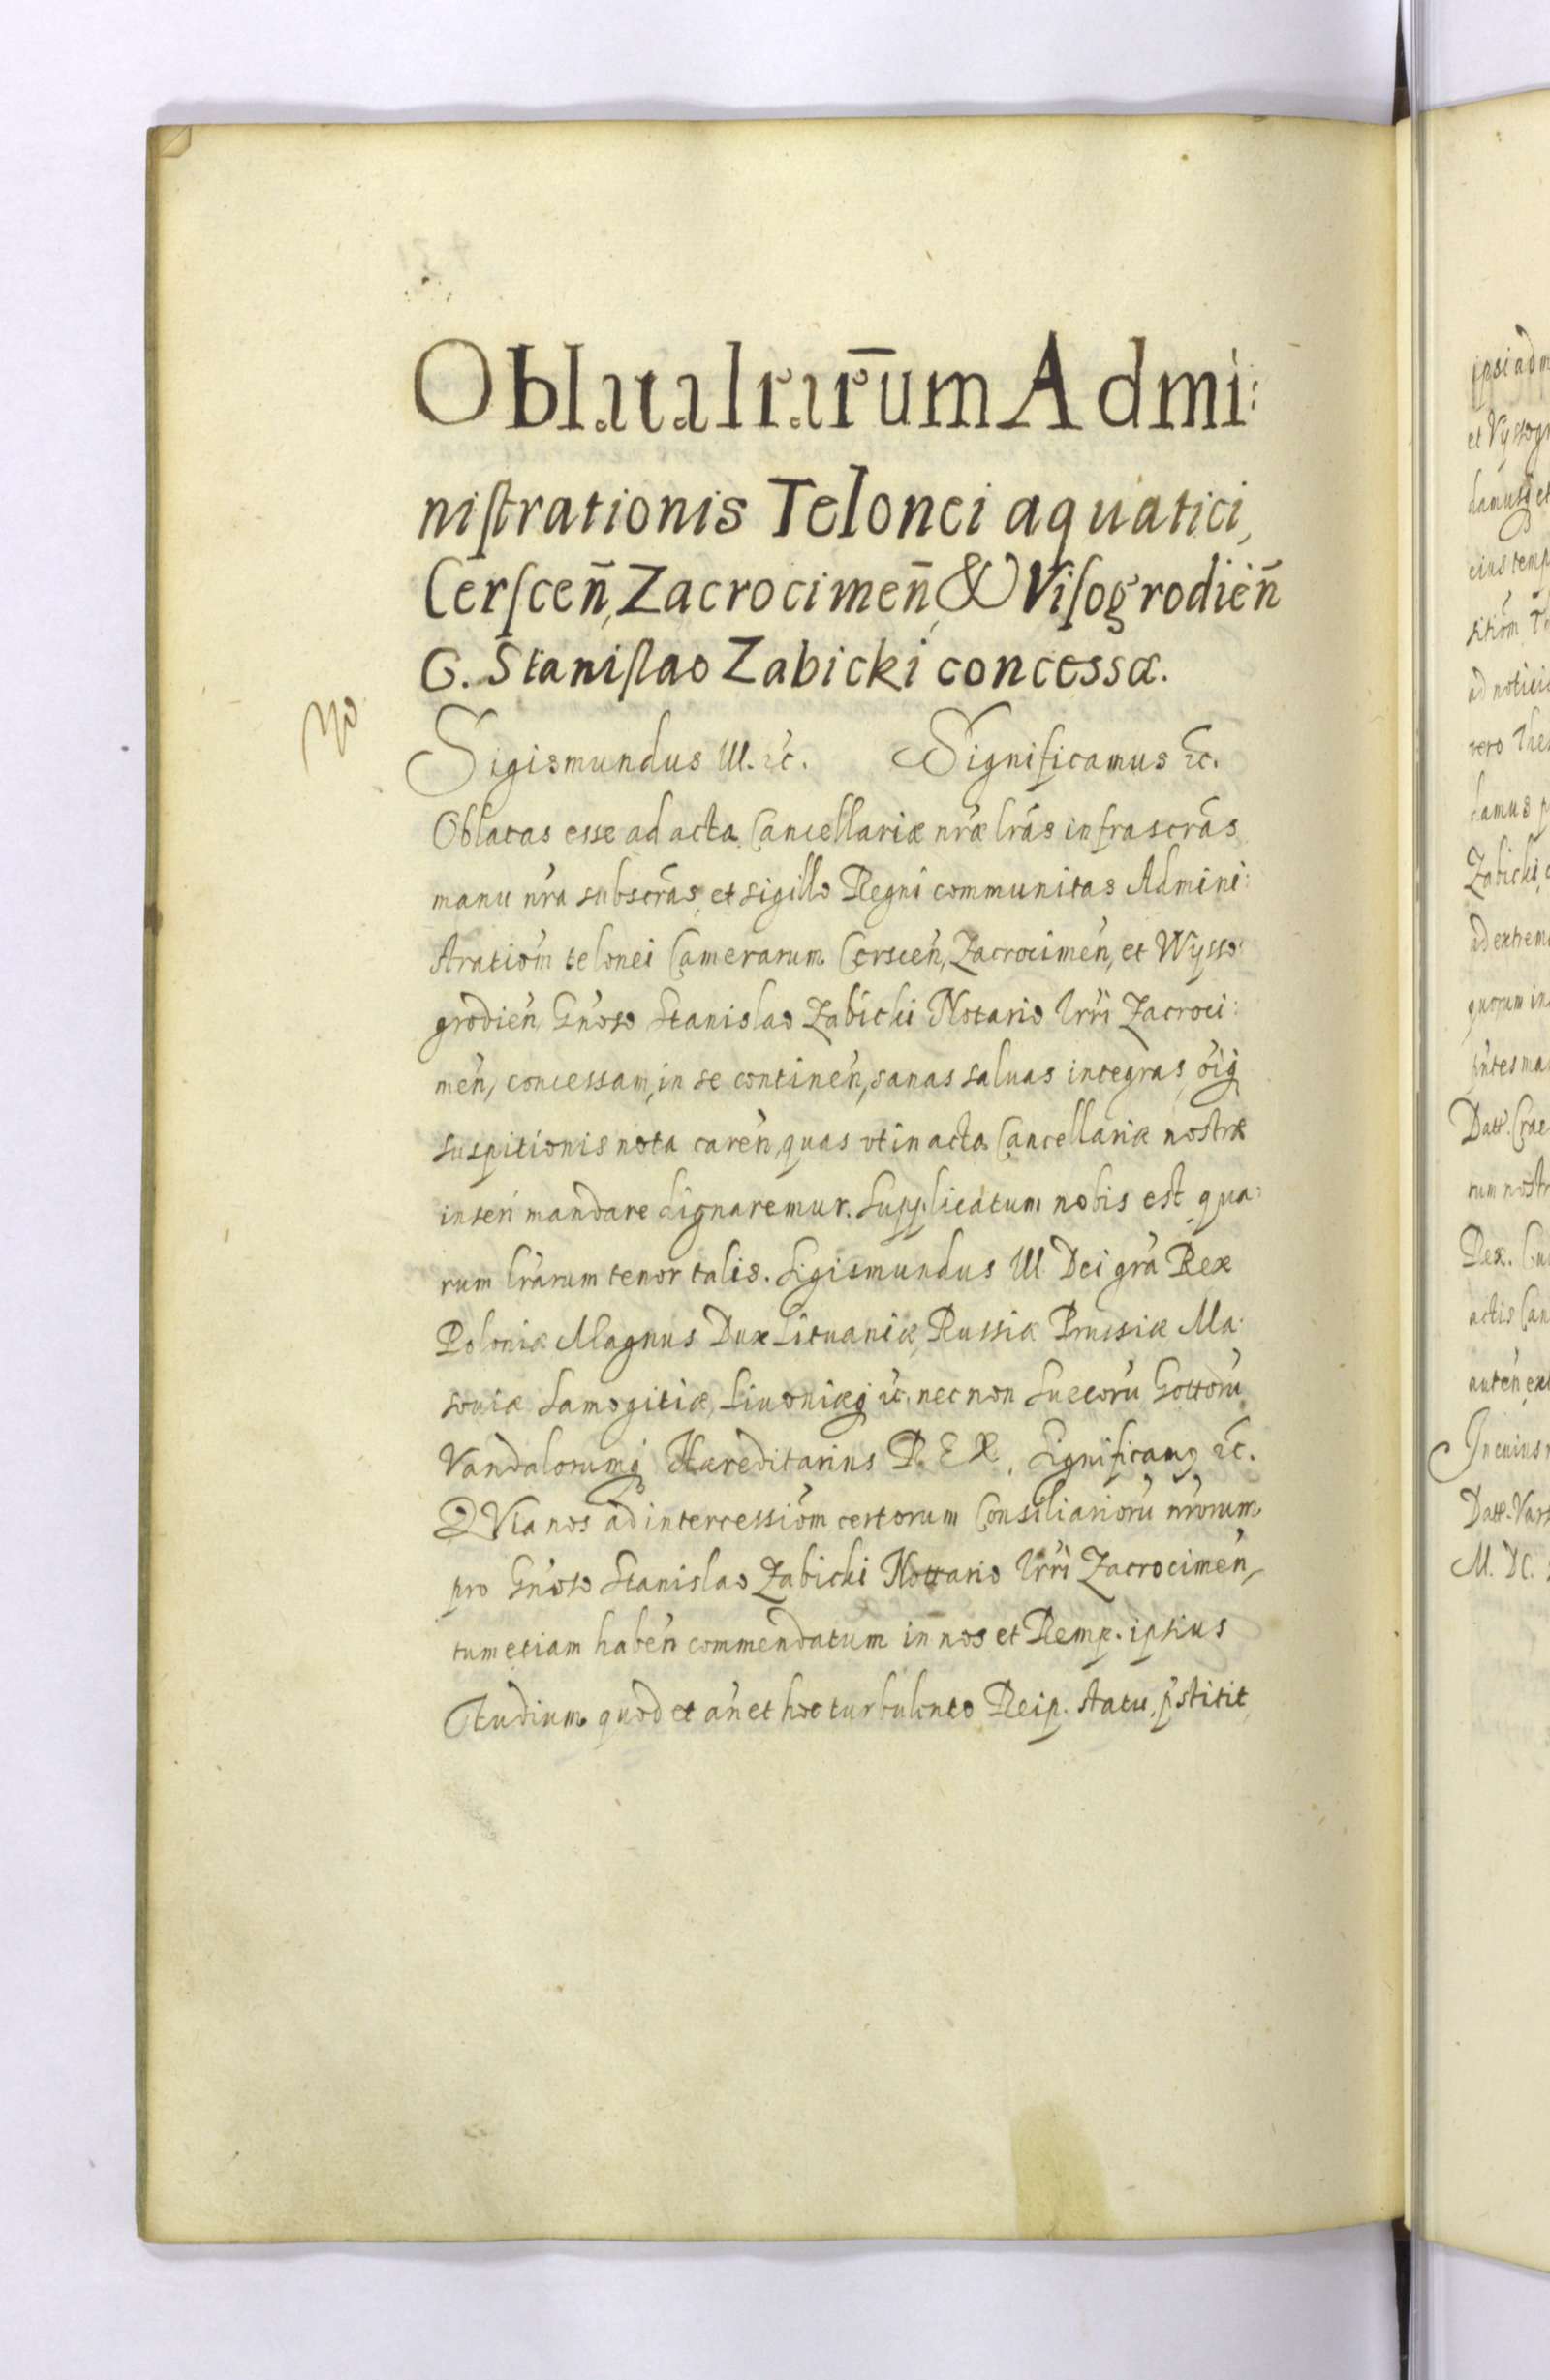 Oblata lrarū̄m Admi:
niſtrationis Telonei aquatici,
Cerſcen̄, Zacrocimen̄, & Viſogrodien̄
G. Staniſlao Zabicki concessæ.
Sigismundus III. ꝛc. Significamus ꝛc.
Oblatas esse ad acta Cancellariæ nr̃æ lrãs infrascrãs
manu nr̃a subscrãs, et sigillo Regni communitas Admini:
stratiom̃ telonei Camerarum Cerscen̄, Zacrocimen̄, et Wysso:
grodien̄ Gn̄oso Stanislao Zabicki Notario Trr̃i Zacroci:
men̄, concessam, in se continen̄, sanas saluas integras, õiq̃
suspitionis nota caren̄, quas vt in acta Cancellariæ nostræ
inseri mandare dignaremur. Supplicatum nobis est qua:
rum lrãrum tenor talis. Sigismundus III Dei grã Rex
Poloniæ Magnus Dux Lituaniæ, Russiæ Prussiæ Ma:
souiæ Samogitiæ, Liuoniæq̃ ꝛc. nec non Suecorũ Gottorũ
Vandalorumq̃ Hæreditarius REX. Significamꝰ ꝛc.
QVia nos ad intercessiom̃ certorum Consiliariorũ nr̃orum
pro Gn̄oso Stanislao Zabicki Nottario Trr̃i Zacrocimen̄,
tum etiam haben̄ commendatum in nos et Remp. ipsius
studium quod et an̄ et hoc turbulento Reip. statu, p̃stitit
ipsi adm
et Vyssogr
eius temp
ad notici
vero The
Zabicki, c
ad extrem
quorum in
Datt. Crac
rum nostr
Rex.
actis Can
auten̄ ext
In cuius r
Datt. Vars
M. DC.